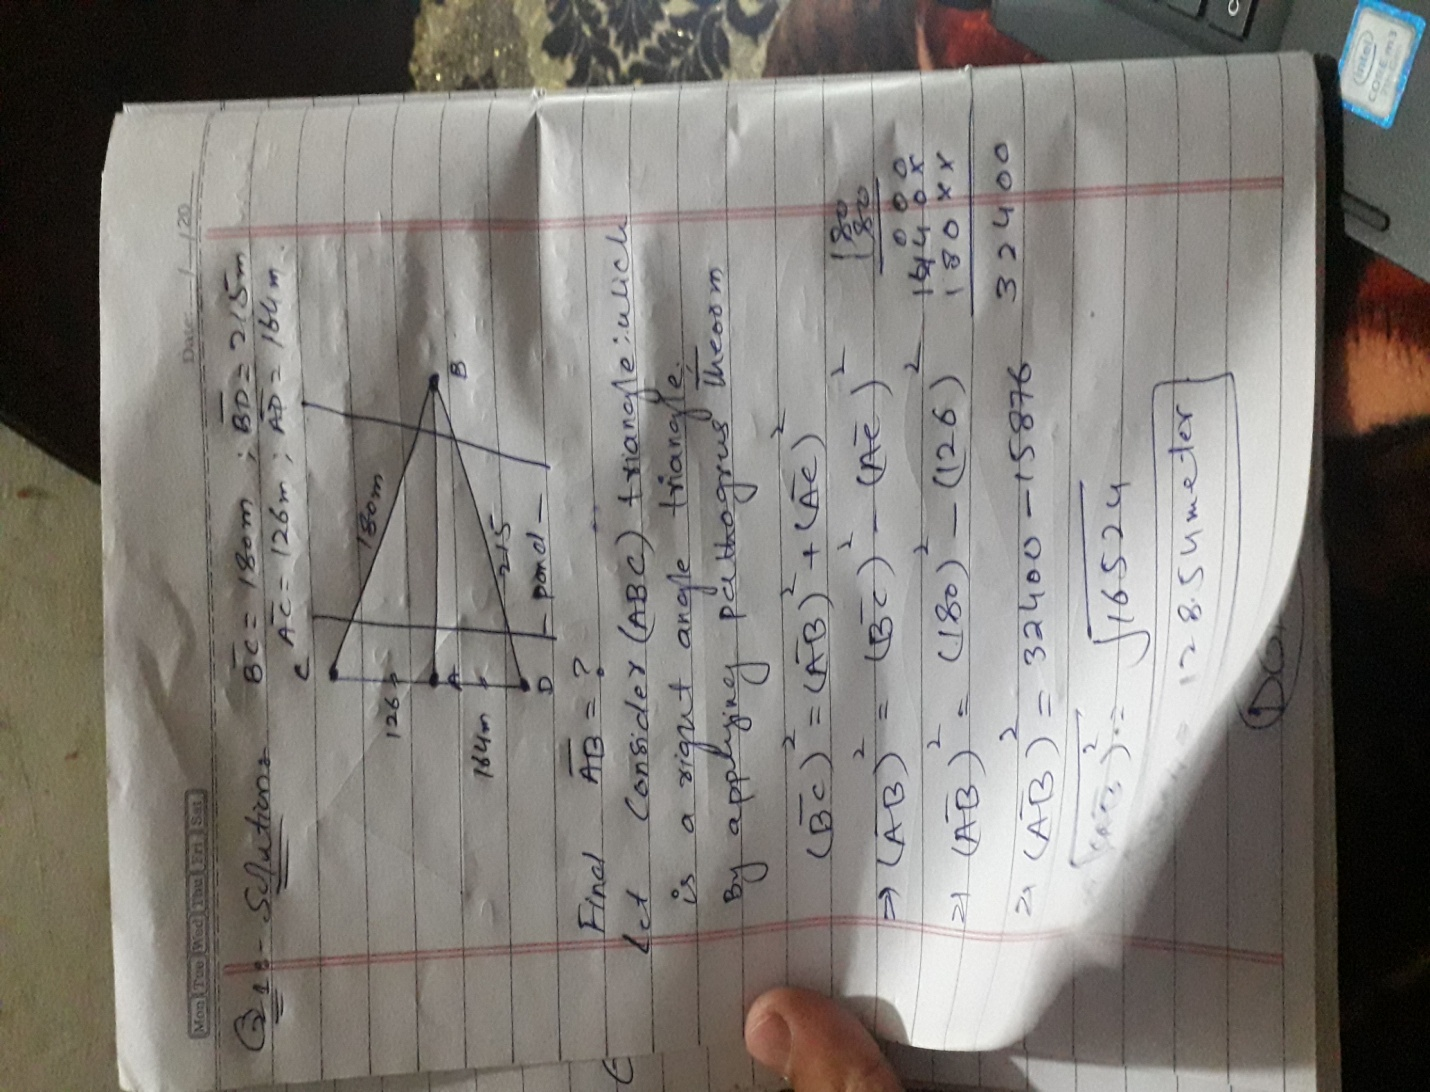 Mon Tue Wed Thu Fri Sat
Date / /20
Q1:- Solution:- BC = 180m ; BD = 215m
AC = 126m ; AD = 164m.
C
180m
126m
A
B
164m
215
D
- pond -
Find AB = ?
Let Consider (ABC) triangle which
is a right angle triangle.
By applying pathogrus Theoom
(BC)² = (AB)² + (AC)²
⇒ (AB)² = (BC)² - (AC)²
⇒ (AB)² = (180)² - (126)²
⇒ (AB)² = 32400 - 15876
√(AB)² = √16524
128.54 meter
180
180
000
1440x
180xx
32400
intel
CORE m3